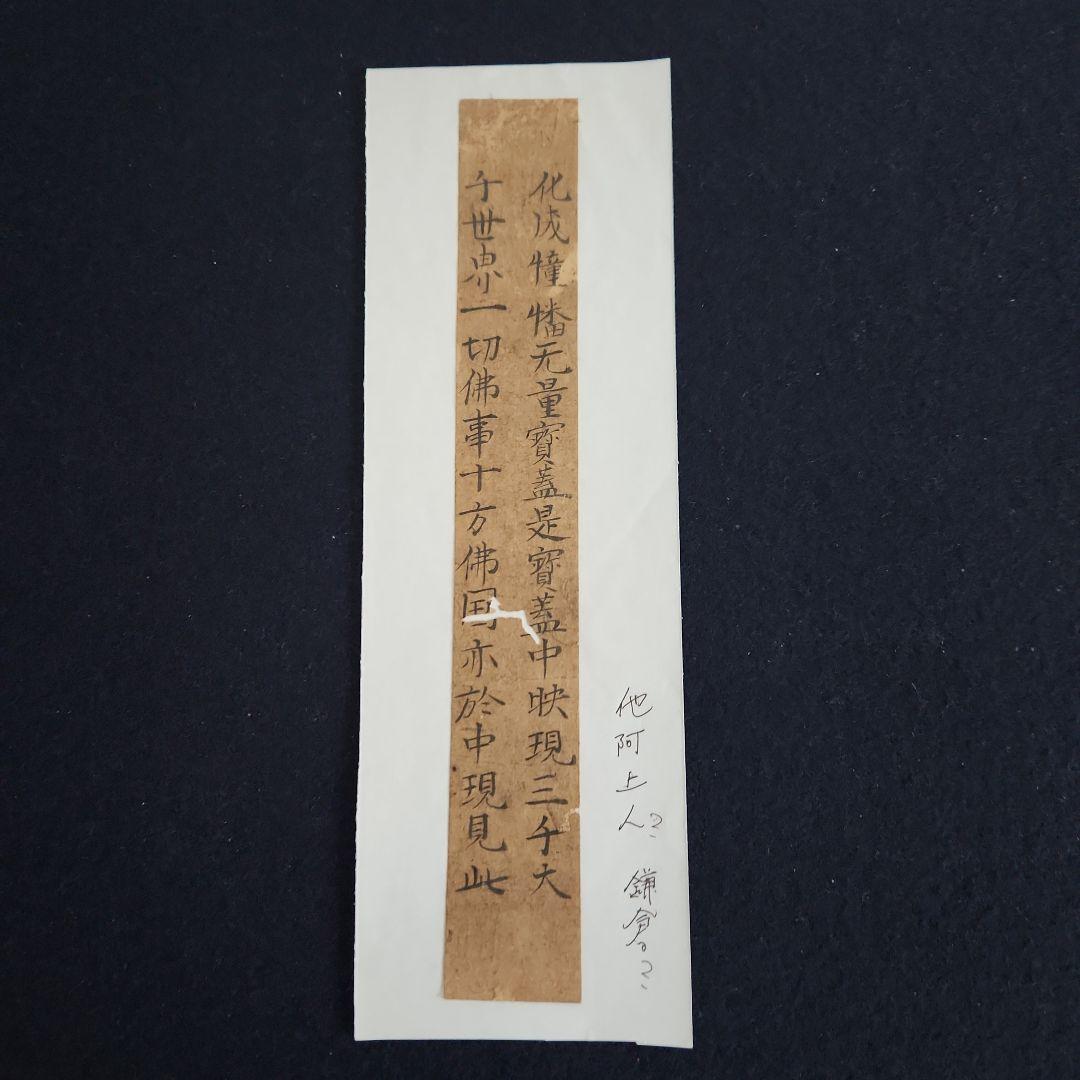 化成憧憣无量寳蓋是寳蓋中映現三千大
千世界一切佛事十方佛国亦於中現見此
他阿上人? 鎌倉?